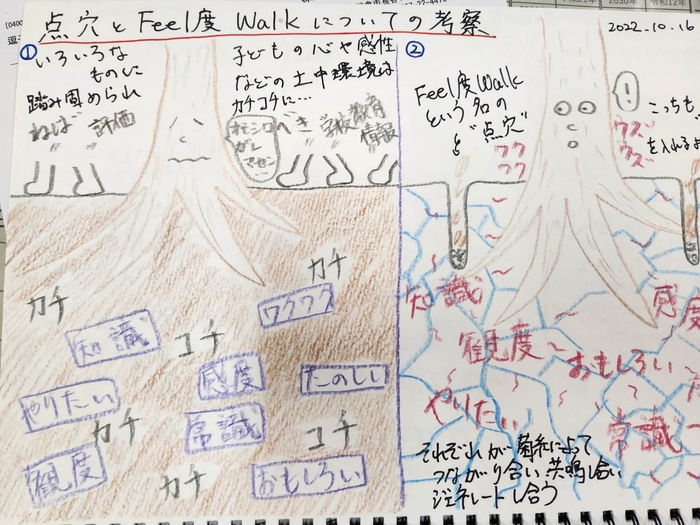 点穴とFeel度Walkについての考察
2022.10.16
①
いろいろな
ものに
踏み固められ
ねば
評価
子どもの心や感性
などの土中環境は
カチコチに…
オモシロ
ガレ
マセーン
べき
学校教育
情報
カチ
カチ
ワクワク
知識
コチ
感度
たのしい
やりたい
カチ
常識
コチ
観度
カチ
おもしろい
②
Feel度Walk
という名の
"点穴"
と
ワク
ワク
!
こっちも
ウズ
ウズ
を入れるよ
知識
感度
観度
おもしろい
やりたい
常識
それぞれが菌糸によって
つながり合い、共鳴し合い
ジェネレートし合う